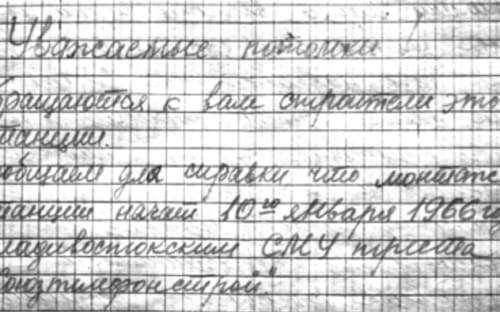 Уважаемые потомки!
бращаются к вам строители это
танции.
общаем для справки что монтаж
танции начат 10го января 1966 г
ладивостокским СМУ треста
оюзтелефонстрой".